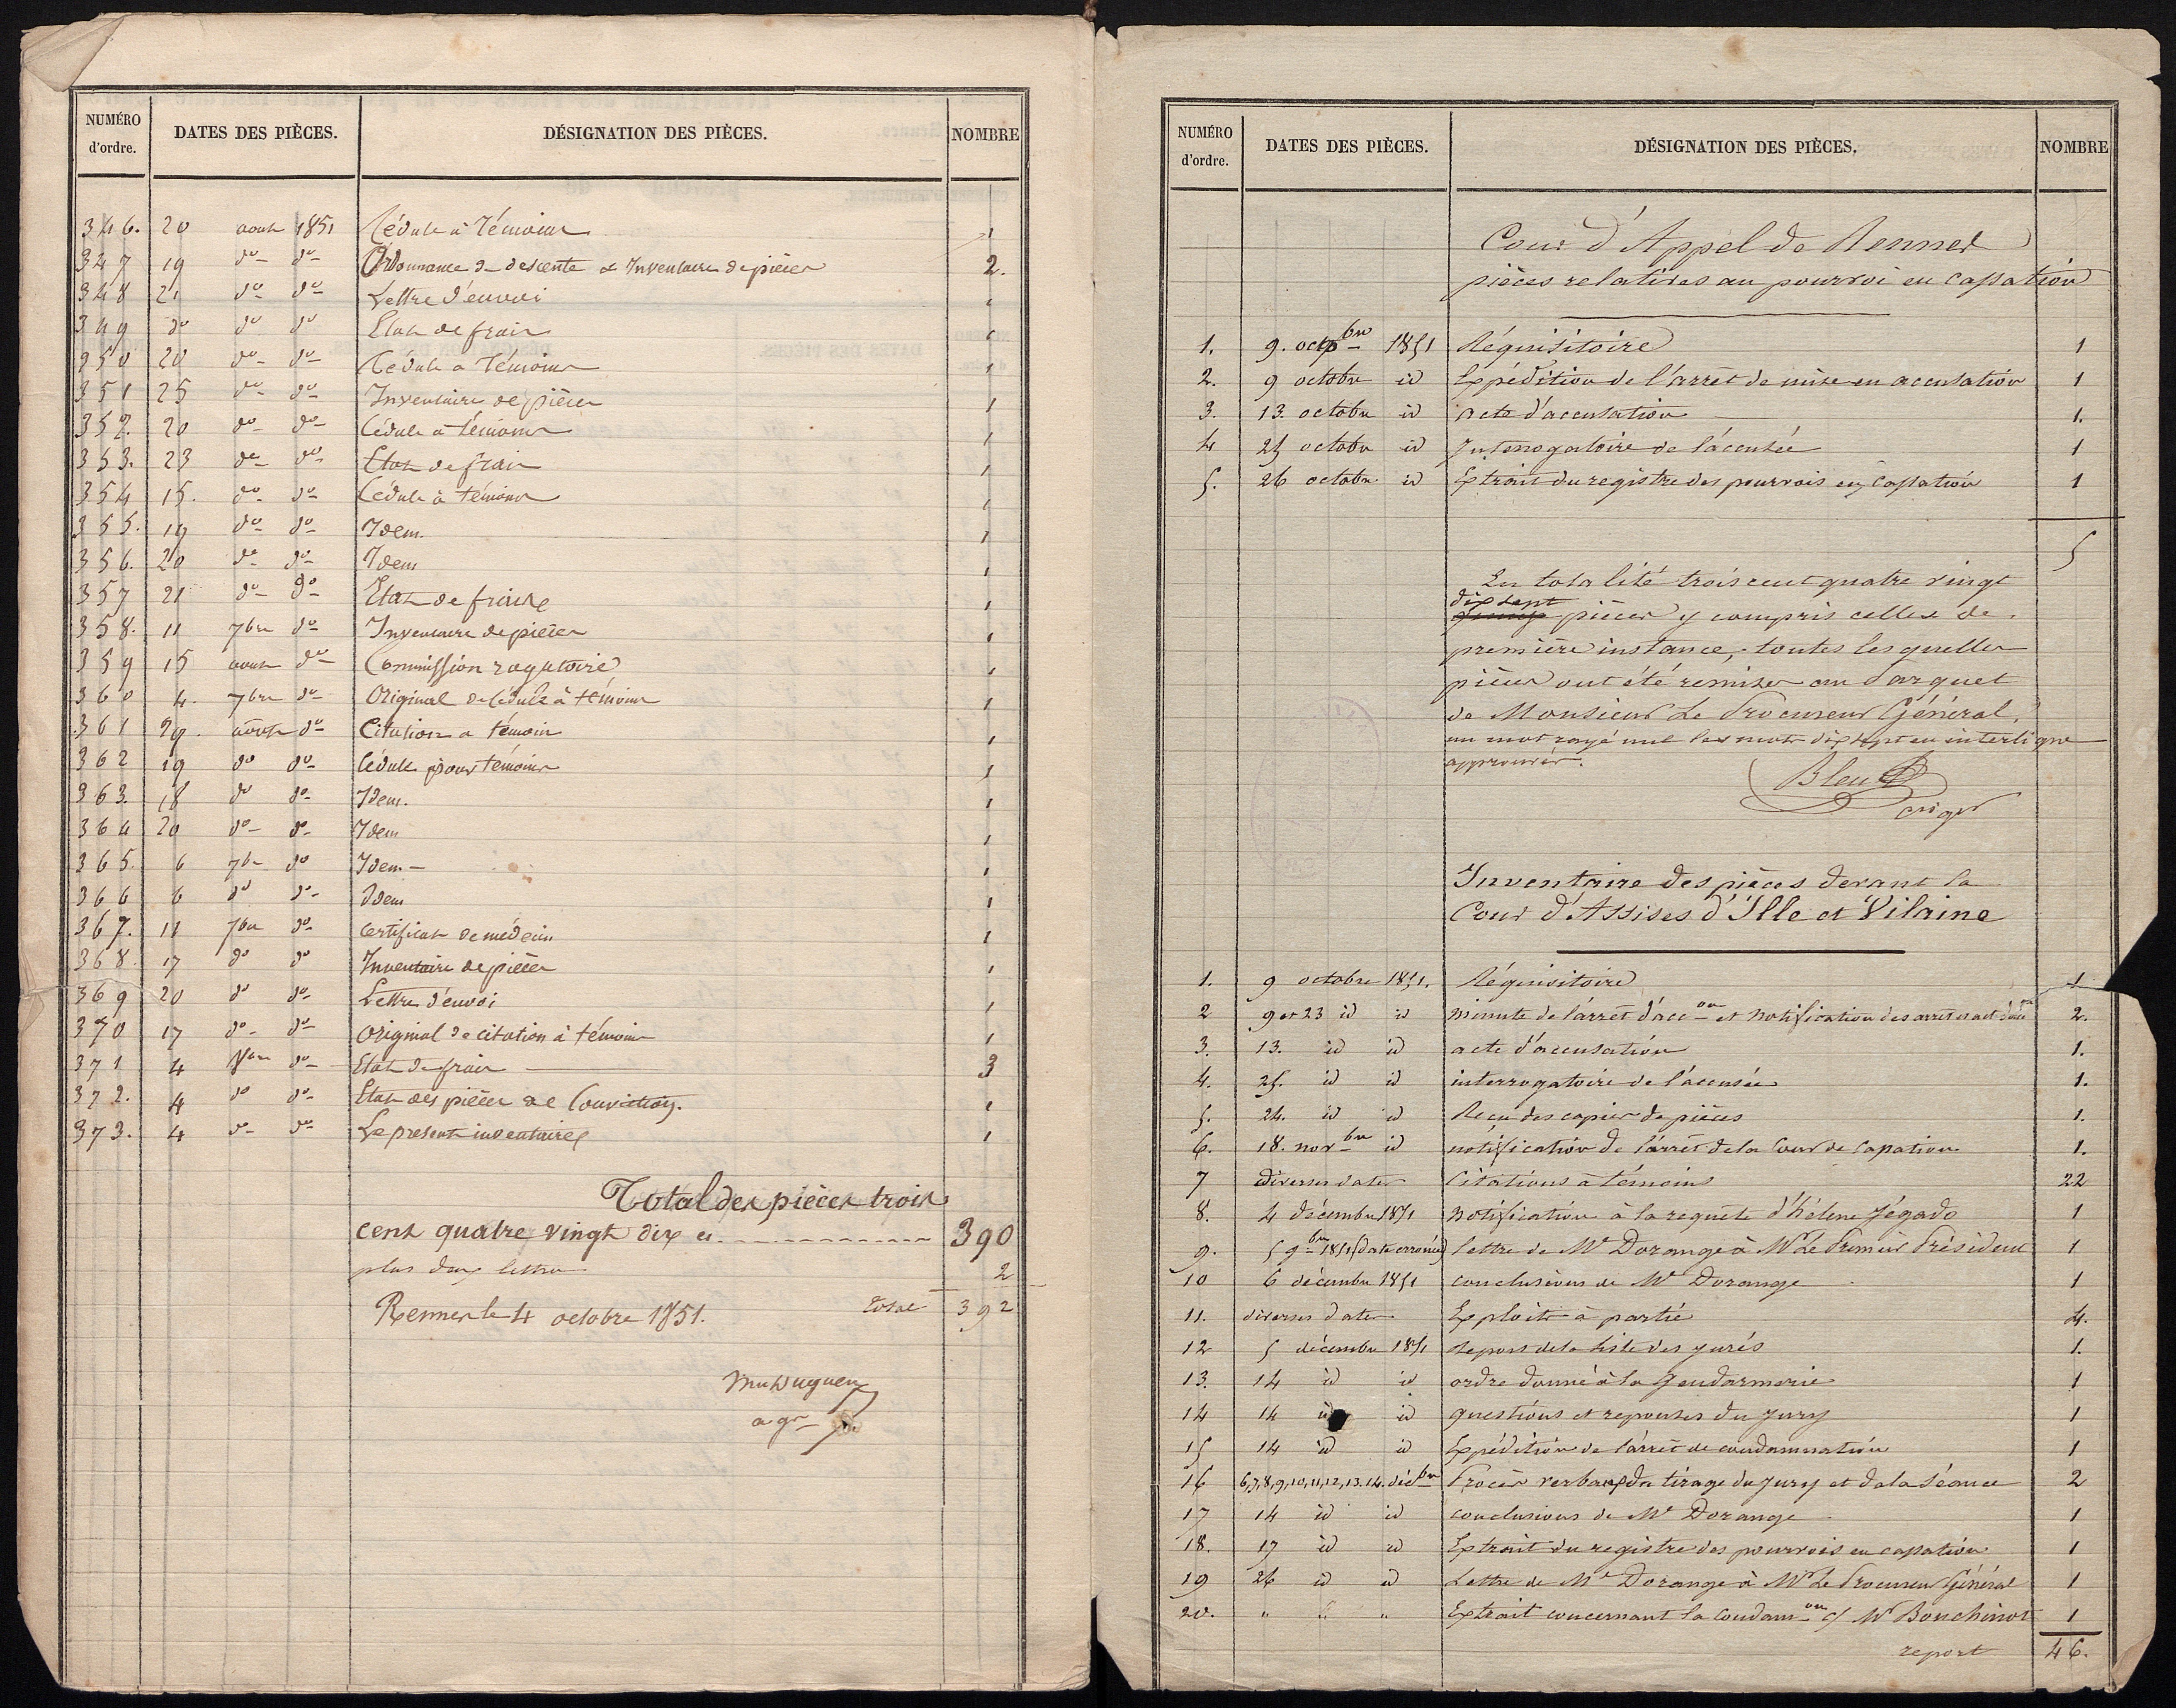 NUMÉRO d'ordre. DATES DES PIÈCES. DÉSIGNATION DES PIÈCES. NOMBRE
346. 20 aout 1851 Cédule à témoins 1
347 19 do do Ordonnance de descente et Inventaire de pièces 2.
348 21 do do Lettre d'envoi 1
349 do do do Etat de frais 1
350 20 do do Cédule à témoins 1
351 25 do do Inventaire de pièces 1
352. 20 do do Cédule à témoins 1
353. 23 do do Etat de frais 1
354 15. do do Cédule à témoins 1
355. 19 do do Idem. 1
356. 20 do do Idem 1
357 21 do do Etat de frais 1
358. 11 7bre do Inventaire de pièces 1
359 15 aout do Commission rogatoire 1
360 4. 7bre do Original de Cédule à témoins 1
361 29. aout do Citation a témoin 1
362 19 do do Cédule pour témoins 1
363. 18 do do Idem. 1
364 20 do do Idem 1
365. 6 7bre do Idem 1
366 6 do do Idem 1
367. 11 7bre do Certificat de médecin 1
368. 17 do do Inventaire de pièces 1
369 20 do do Lettre d'envoi 1
370 17 do do Original de citation à témoin 1
371 4 do Etat de frais 3
372. 4 do do Etat des pièces de Conviction. 1
373. 4 do do Le présent inventaire 1
Total des pièces trois
cent quatre vingt dix ci 390
plus deux lettres 2
Rennes le 4 octobre 1851. Total 392
NUMÉRO d'ordre. DATES DES PIÈCES. DÉSIGNATION DES PIÈCES. NOMBRE
Cour d'Appel de Rennes
pièces relatives au pourvoi en cassation
1. 9. octobre 1851 Réquisitoire 1
2. 9 octobre id Expédition de l'arrêt de mise en accusation 1
3. 13. octobre id acte d'accusation 1.
4 25 octobre id Interrogatoire de l'accusée 1
5. 26 octobre id Extrait du registre des pourvois en cassation 1
5
En totalité trois cent quatre vingt
dix sept
pièces y compris celles de
première instance, toutes lesquelles
pièces ont été remises au Parquet
de Monsieur Le Procureur Général,
un mot rayé nul les mots dix sept en interligne
approuvés.
Inventaire des pièces devant la
Cour d'Assises d'Ille et Vilaine
1. 9 octobre 1851. Réquisitoire 1
2 9 et 23 id id minute de l'arrêt d'accon et notification des arrêt et act d'accon 2.
3. 13. id id acte d'accusation 1.
4. 25. id id interrogatoire de l'accusée 1.
5. 24. id id Reçu des copies de pièces 1.
6. 18. novbre id notification de l'arrêt de la Cour de Cassation 1.
7 diverses dates Citations à témoins 22
8. 4 décembre 1851 notification à la requête d'hélène Jégado 1
9. 5 9bre 1851 (date erronée) lettre de Me Dorange à Mr Le Premier Président 1
10 6 décembre 1851 conclusions de Me Dorange 1
11. diverses dates Exploits à partie 4.
12 5 décembre 1851 de la liste des jurés 1.
13. 14 id id ordre donné à la Gendarmerie 1
14 14 id id questions et reponses du jury 1
15 14 id id Expédition de l'arrêt de condamnation 1
16 6,7,8,9,10,11,12,13.14.décbre Procès verbaux du tirage du jury et de la séance 2
17 14 id id conclusions de Me Dorange 1
18. 17 id id Extrait du registre des pourvois en cassation 1
19 26 id id Lettre de Me Dorange à Mr Le Procureur Général 1
20. " " " Extrait concernant la condamon c/ Mr Bouchinot 1
report 46.